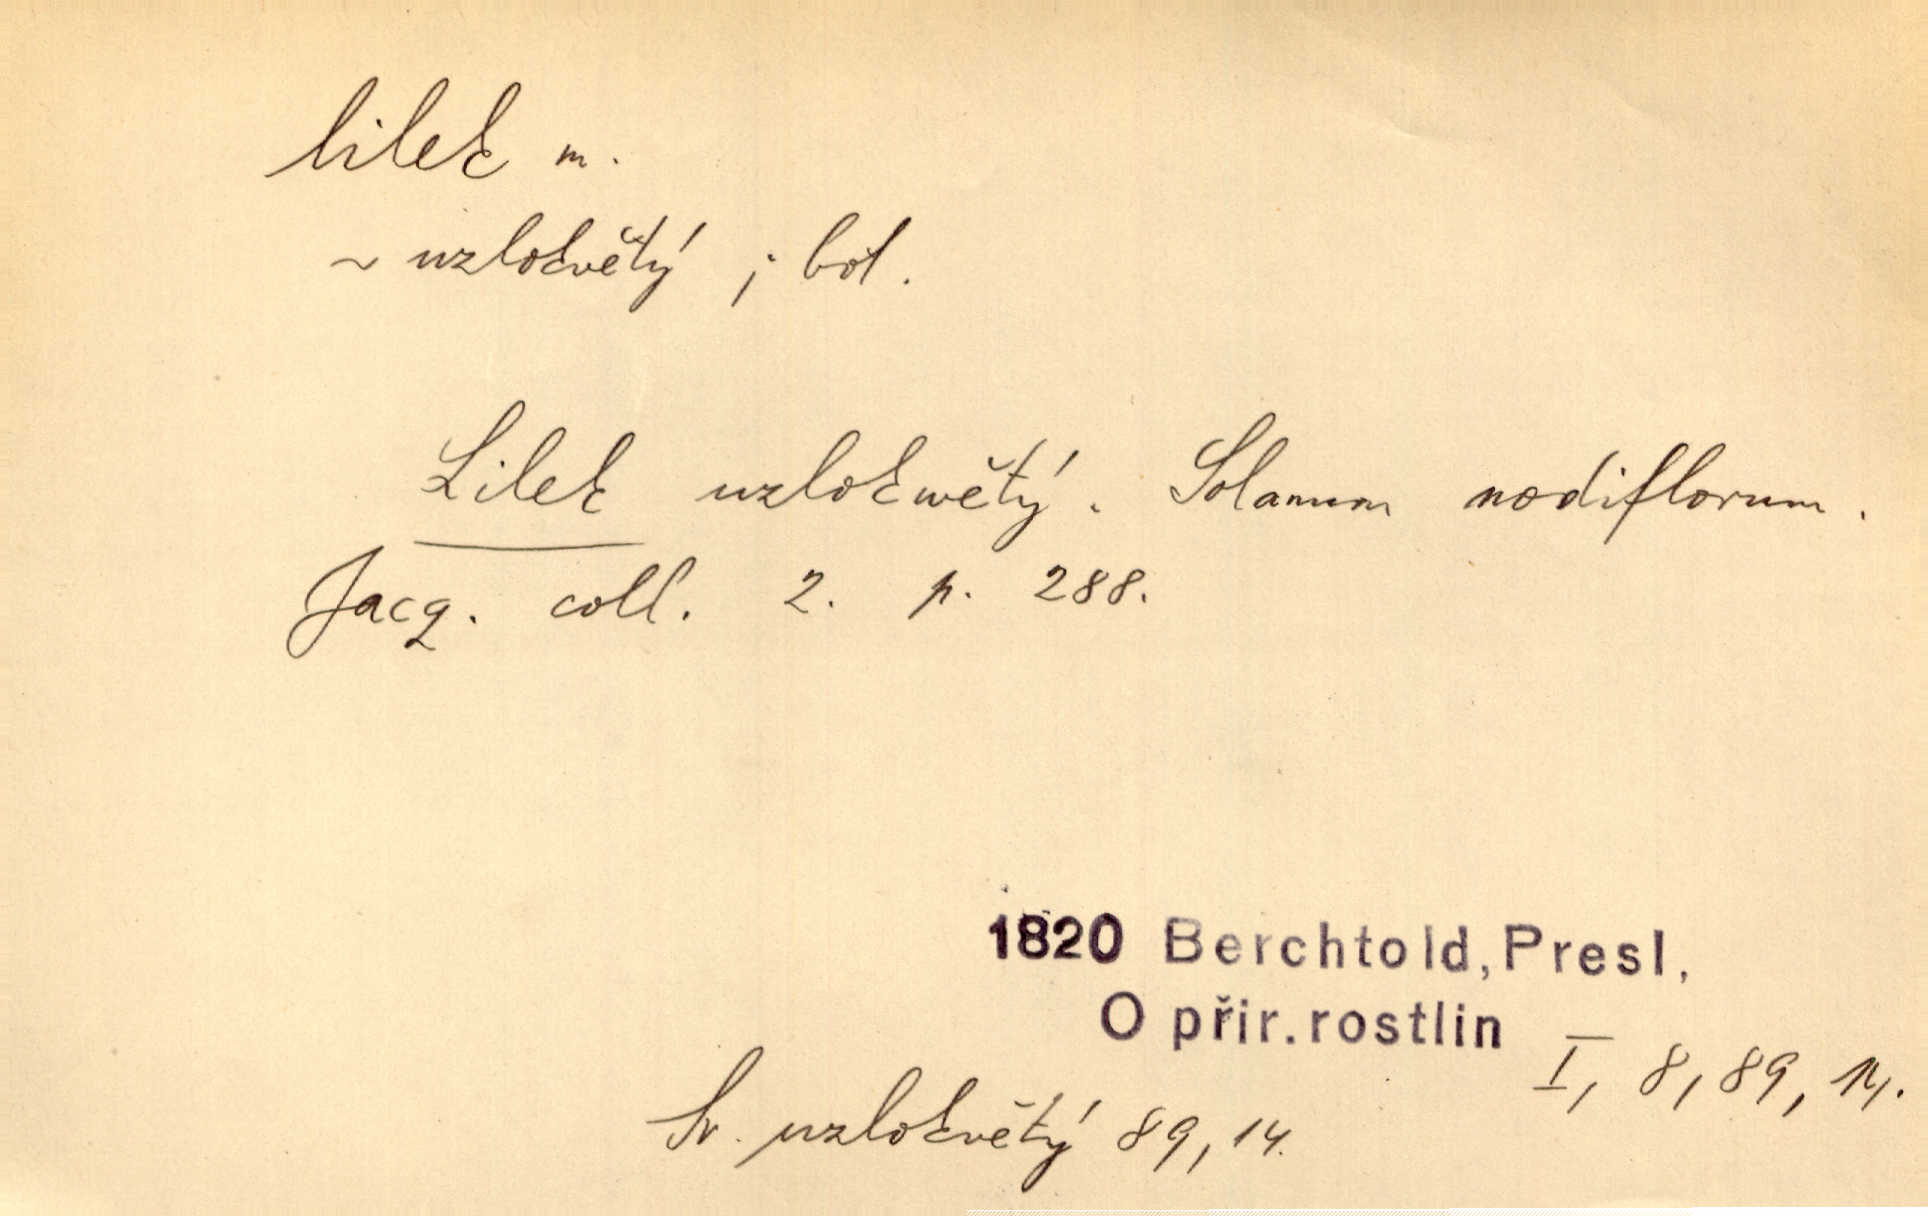 lilek m.
~ uzlokvětý ; bot.
Lilek uzlokwětý. Solanum nodiflorum.
Jacq. coll. 2. p. 288.
1820 Berchtold, Presl,
O přir. rostlin I, 8, 89, 14.
Sr. uzlokvětý 89, 14.